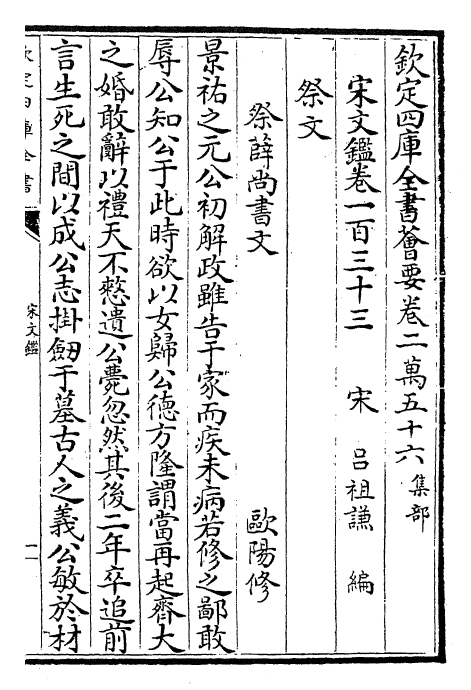 欽定四庫全書薈要卷二萬五十六 集部
宋文鑑卷一百三十三
宋 呂祖謙 編
祭文
祭薛尚書文 歐陽修
景祐之元公初解政雖告于家而疾未病若修之鄙敢
辱公知公于此時欲以女歸公德方隆謂當再起齊大
之婚敢辭以禮天不憗遺公薨忽然其後二年卒追前
言生死之間以成公志掛劔于墓古人之義公敏於材
欽定四庫全書
宋文鑑
一